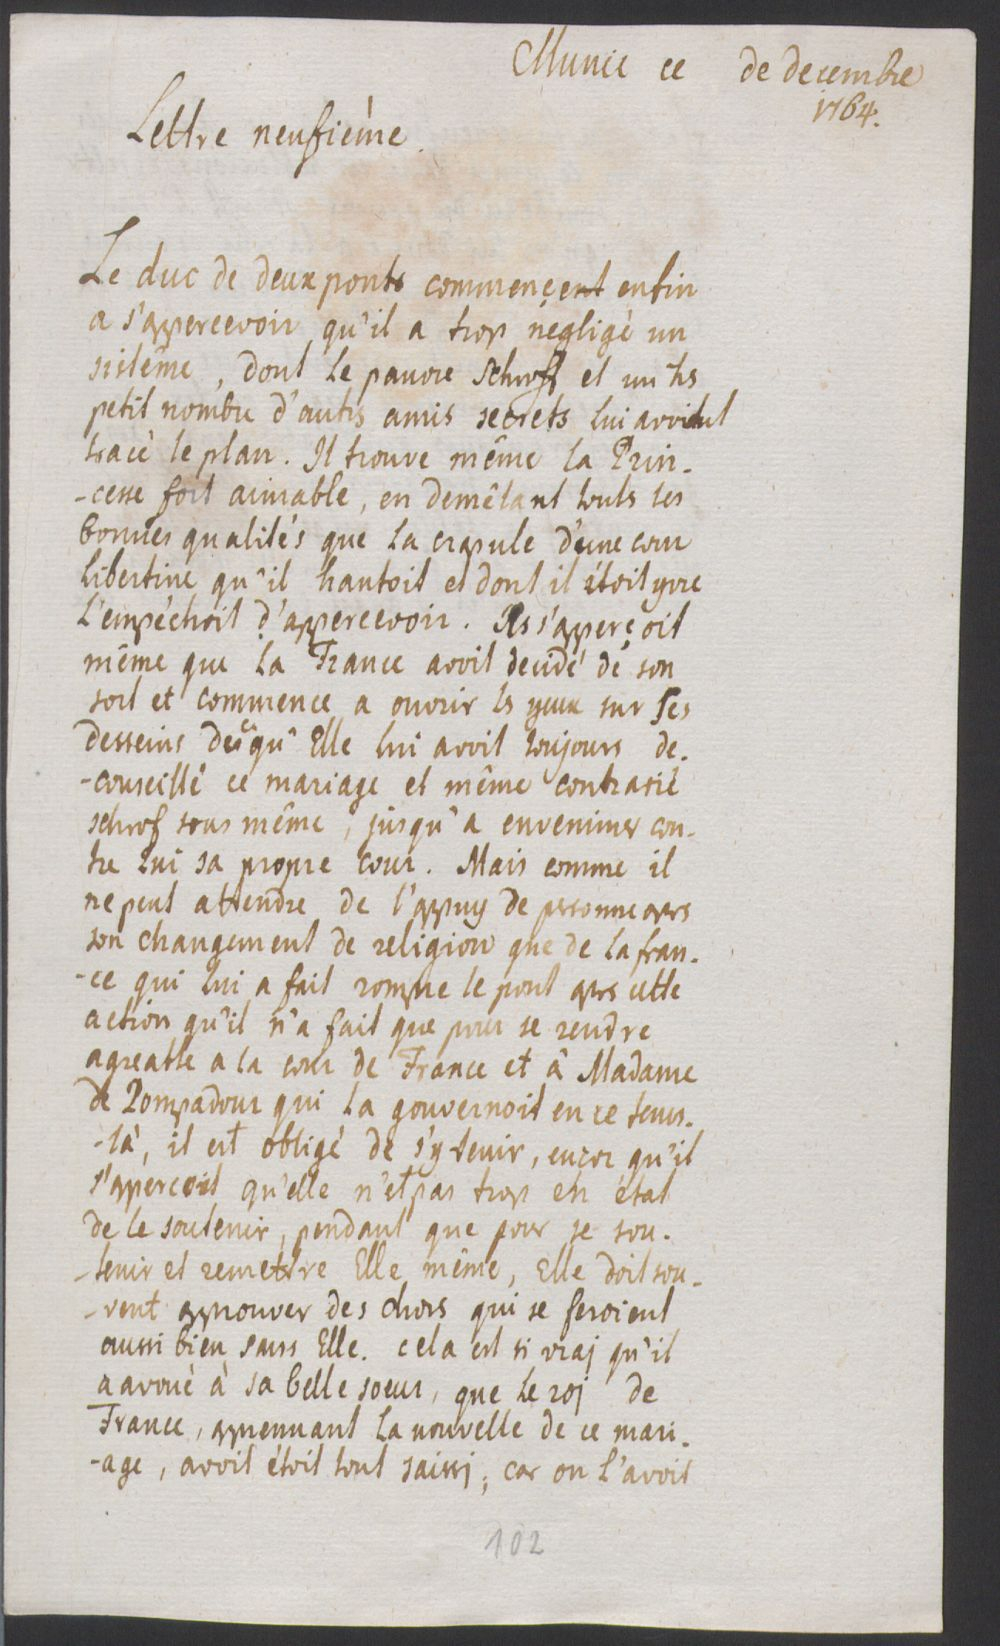 Munic ce de decembre
1764.
Lettre neufième.
Le duc de deux ponts commencent enfin
a s'appercevoir qu'il a trop negligé un
sistême, dont le pauvre Schroff et un trs
petit nombre d'autrs amis secrets lui avoient
tracé le plan. Il trouve même la Prin-
-cesse fort aimable, en demêlant touts les
bonnes qualités que la crapule d'une cour
libertine qu'il hantoit et dont il étoit yvre
l'empéchoit d'appercevoir. Il s'apperçoit
même que la France avoit decidé de son
sort et commence a ouvrir ls yeux sur ses
desseins desqu'Elle lui avoit toujours de-
-conseillé ce mariage et même contrarié
schrof sous même, jusqu'a envenimer con-
tre lui sa propre cour. Mais comme il
ne peut attendre de l'appuy de personne aprs
son changement de religion que de la fran-
-ce qui lui a fait rompre le pont aprs cette
action qu'il n'a fait que pour se rendre
agreable a la cour de France et à Madame
de Pompadour qui la gouvernoit en ce tems-
-là, il est obligé de s'y tenir, encor qu'il
s'apperçoit qu'elle n'est pas trop en état
de le soutenir, pendant que pour se sou-
-tenir et remettre Elle même, Elle doit sou-
-vent approuver des choss qui se feroient
aussi bien sans Elle. cela est si vraj qu'il
a avoué à sa belle soeur, que le roj de
France, apprennant la nouvelle de ce mari-
-age, avoit étoit tout saissj, car on l'avoit
102